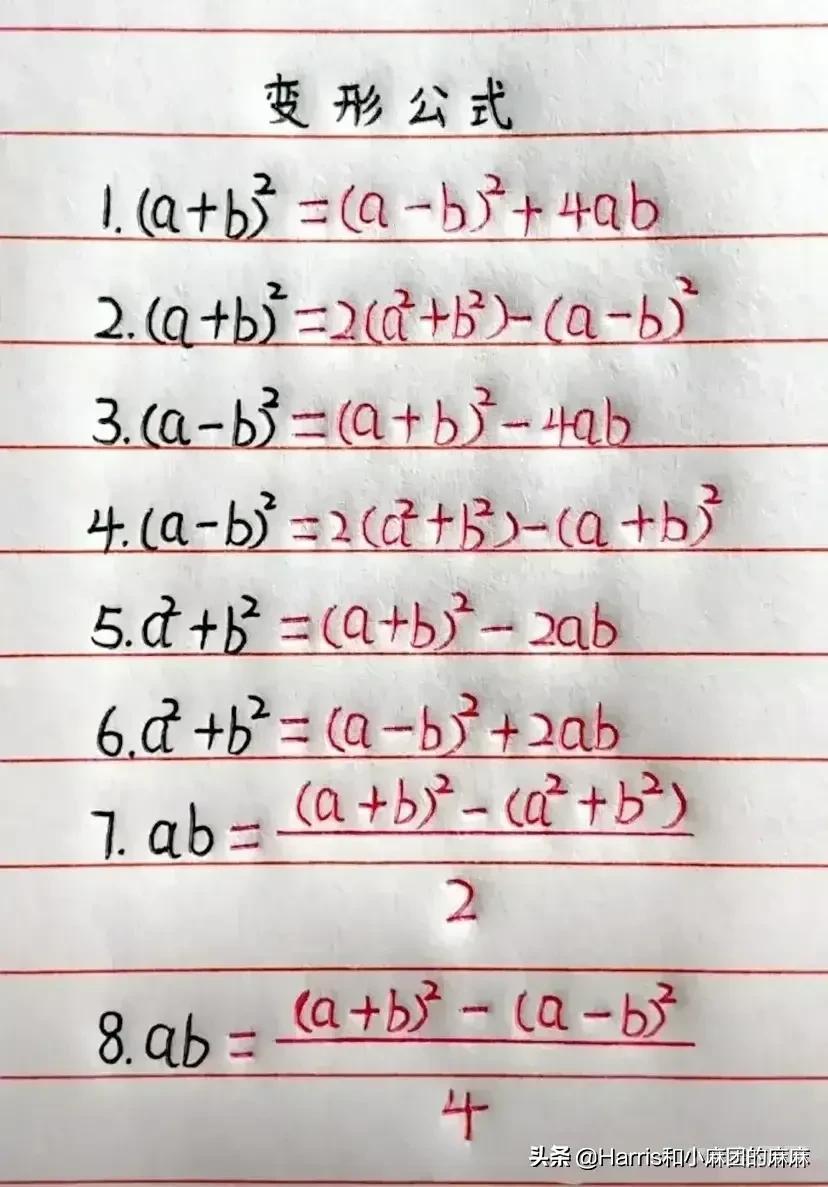 变形公式
1.(a+b)²=(a-b)²+4ab
2.(a+b)²=2(a²+b²)-(a-b)²
3.(a-b)²=(a+b)²-4ab
4.(a-b)²=2(a²+b²)-(a+b)²
5.a²+b²=(a+b)²-2ab
6.a²+b²=(a-b)²+2ab
7.ab=\frac{(a+b)²-(a²+b²)}{2}
8.ab=\frac{(a+b)²-(a-b)²}{4}
头条 @Harris和小麻团的麻麻